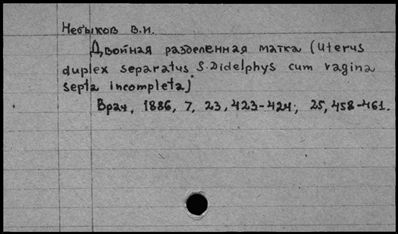 Небыков В.И.
Двойная разделенная матка (Uterus
duplex separatus S. Didelphys cum vagina
septa incompleta)
Врач, 1886, 7, 23, 423-424; 25, 458-461.